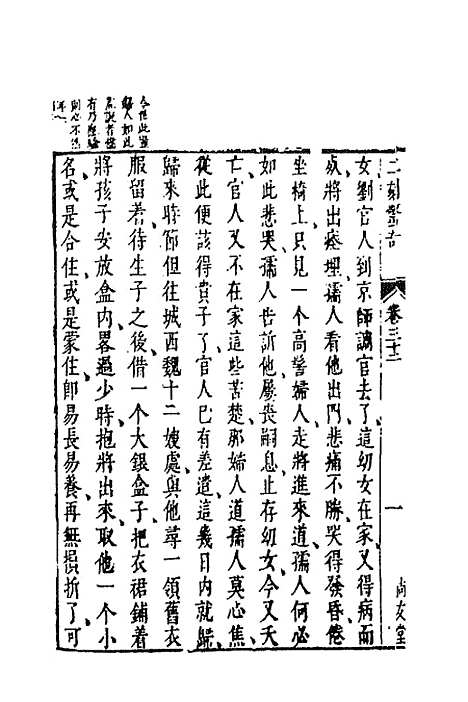 二刻驚奇
卷三十二
一
尚友堂
女劉官人到京師調官去了這幼女在家又得病而
歿將出瘞埋孺人看他出門悲痛不勝哭得發昏倦
坐椅上只見一个高髻婦人走將進來道孺人何必
如此悲哭孺人告訴他屢喪嗣息止存幼女今又夭
亡官人又不在家這些苦楚那婦人道孺人莫心焦
從此便該得貴子了官人已有差遣這幾日內就歸
歸來時節但往城西魏十二嫂處與他尋一領舊衣
服留着待生子之後借一个大銀盒子把衣裙鋪着
將孩子安放盒內畧過少時抱將出來取他一个小
名或是合住或是蒙住卽易長易養再無損折了可